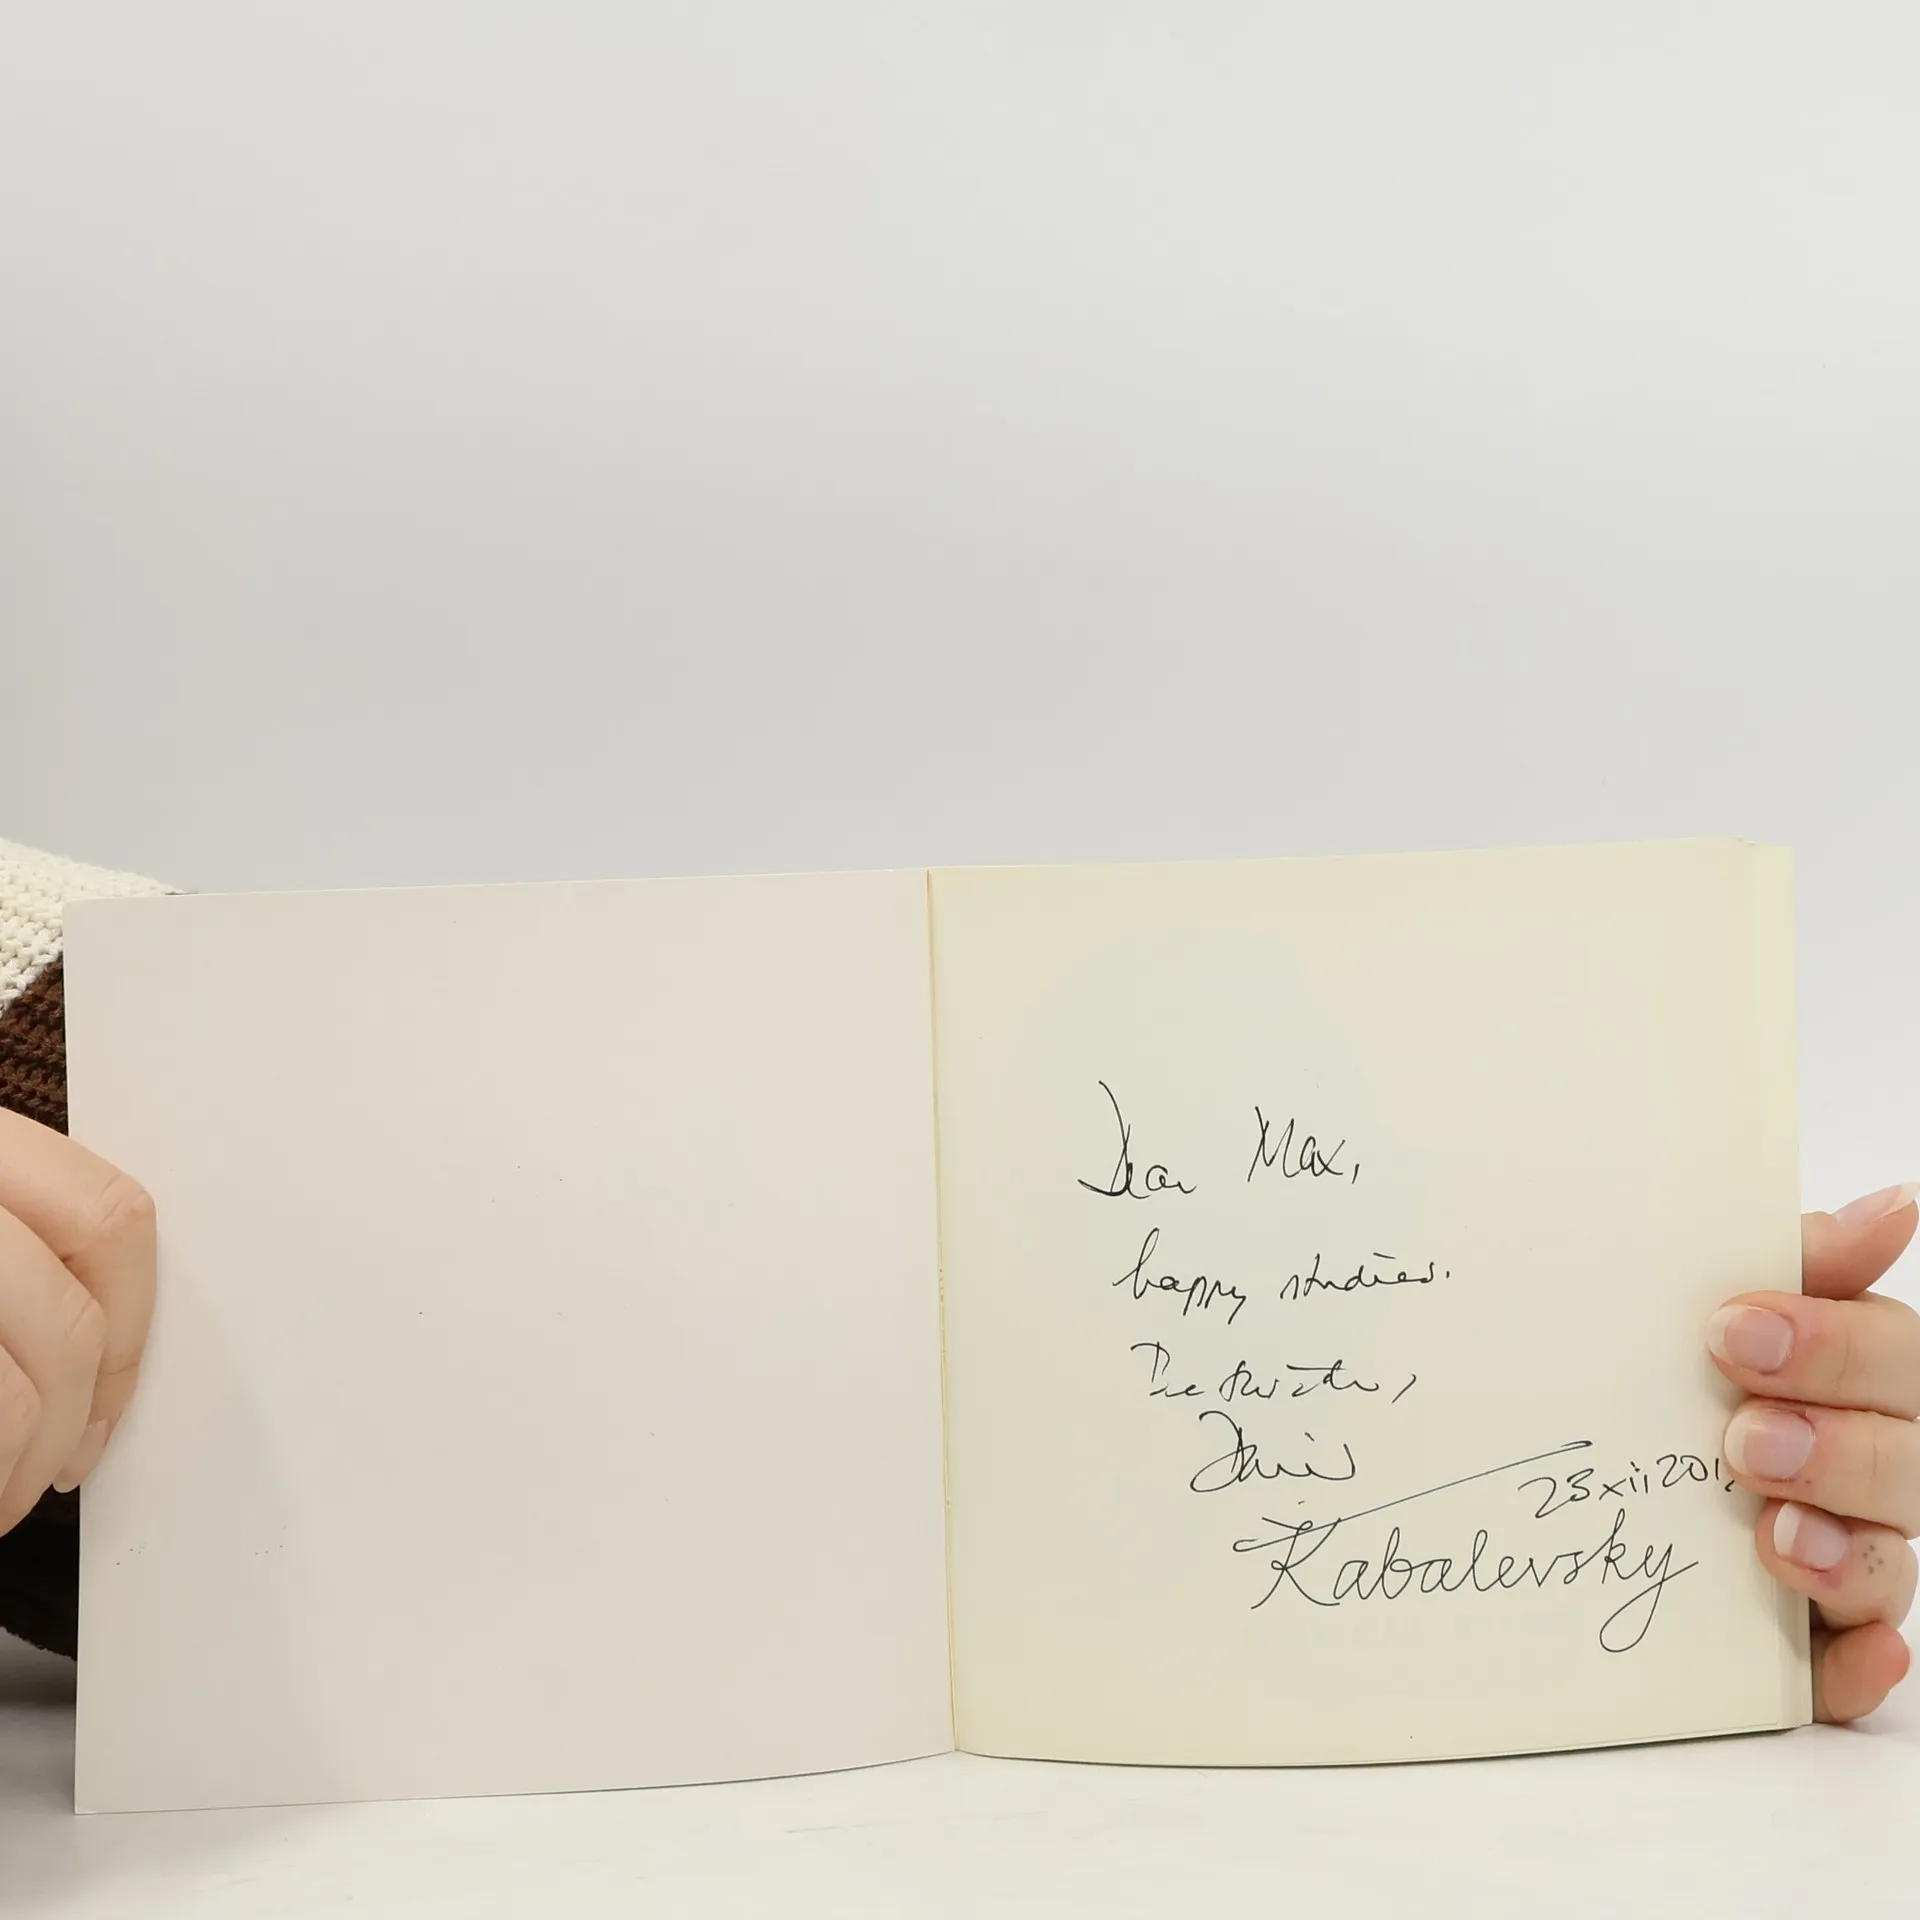 Dear Max,
happy studies.
Best wishes,
23 xii 201
Kabalevsky